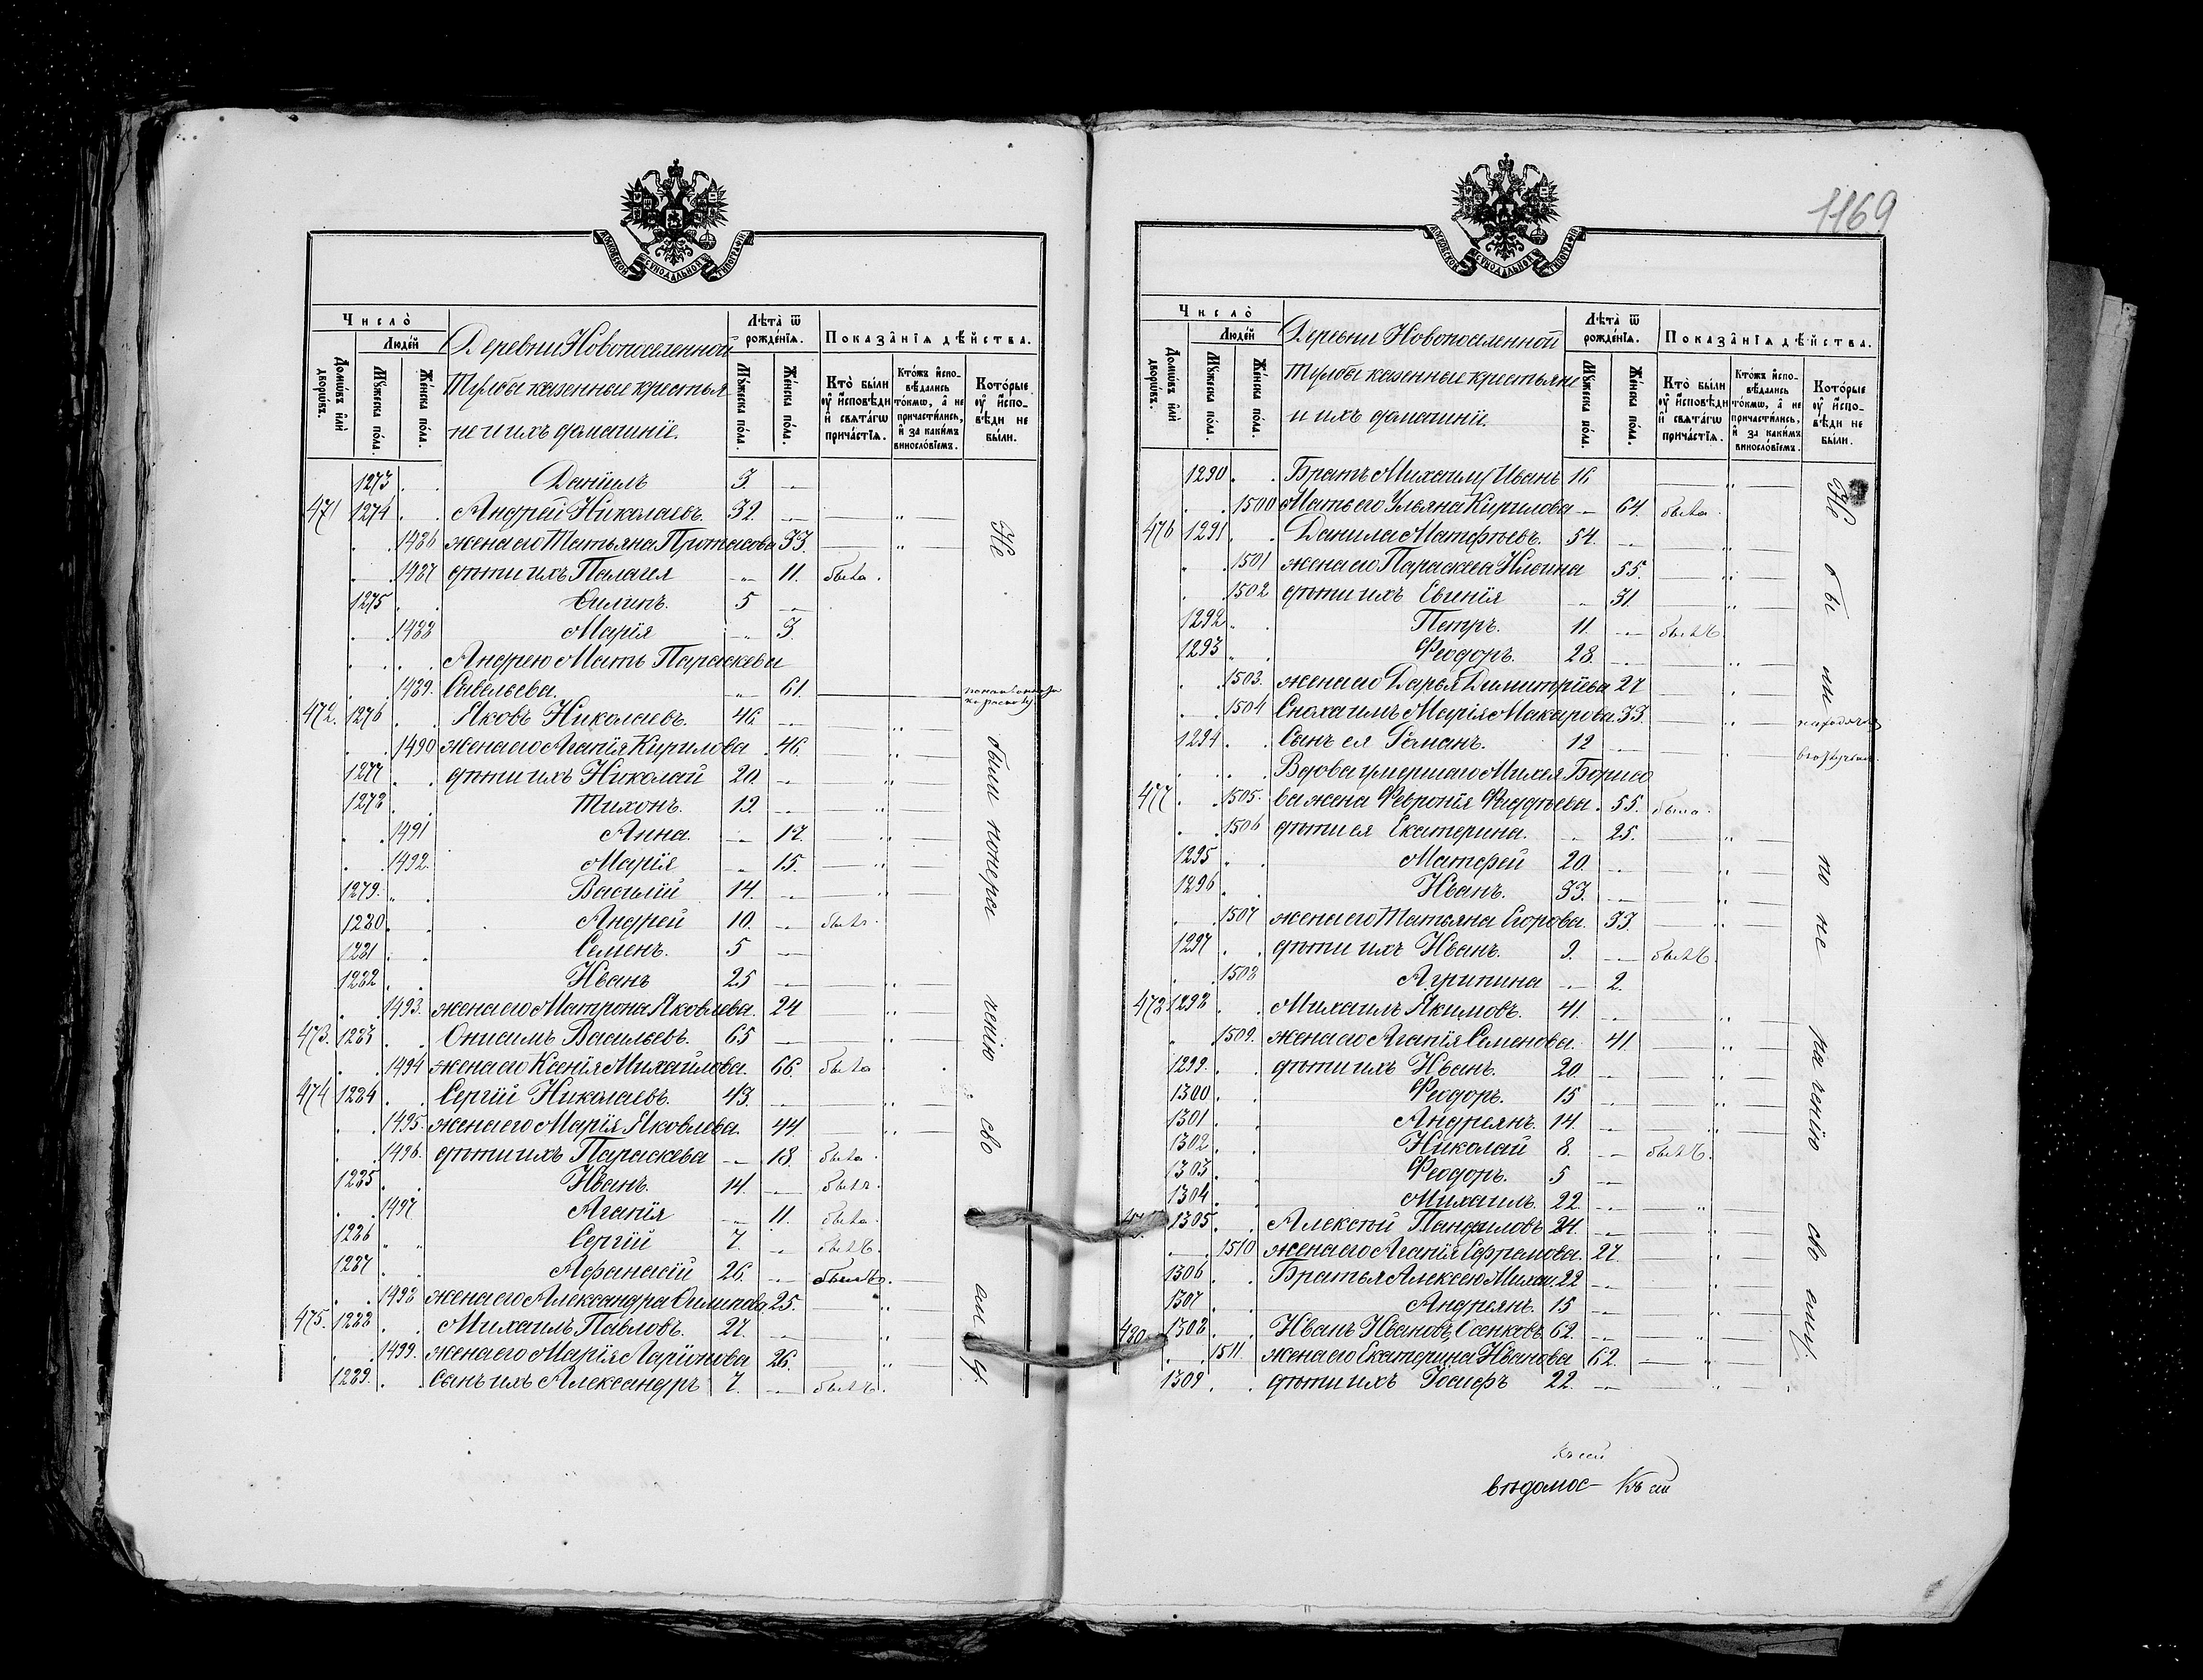 МОСКОВСКОЙ СѴНОДАЛЬНОЙ ТИПОГРАФІИ
Число̀
Людей
Домѡвъ и҆лѝ дворѡвъ.
Мꙋжеска пола.
Женска пола.
Деревни Новопоселенной
казенные крестья
не и ихъ домашніе.
Лѣта̀ ѿ рожденїѧ.
Мꙋжеска пола.
Женска пола.
Показанїѧ дѣйства.
Кто̀ были ᲂу҆ и҆сповѣди и҆ свѧтагѡ причастїѧ.
Ктожъ и҆сповѣдались токмѡ, а҆ не причастились, и҆ за какимъ винословїемъ.
Которые ᲂу҆ и҆сповѣди не были.
1273 Даніилъ 3.
471 1274 Андрей Николаевъ. 32.
1486 жена его Татьяна Протасова 33.
1487 дѣти ихъ Палагея 11. была.
1275 Филипъ. 5
1488 Марія 3.
Андрею Мать Параскева
1489. Савельева. 61.
472. 1276 Яковъ Николаевъ. 46.
1490 жена его Агапія Кирилова 46.
1277 дѣти ихъ Николай 20.
1278 Тихонъ. 19.
1491 Анна. 17.
1492 Марія 15.
1279. Василій 14.
1280 Андрей 10. былъ.
1281 Семенъ. 5
1282 Иванъ 25
1493. жена его Матрона Яковлева. 24
473. 1283 Онисимъ Васильевъ. 65
1494 жена его Ксенія Михайлова. 66. была
474 1284 Сергій Николаевъ. 43.
1495. жена его Марія Яковлева. 44
1496. дѣти ихъ Параскева 18. была.
1285 Иванъ. 14. былъ.
1497 Агапія 11. была.
1286 Сергій 7. былъ.
1287 Афанасій 26. былъ.
1498 жена его Александра Филипова 25.
475. 1288 Михаилъ Павловъ. 27.
1499. жена его Марія Ларіонова 26.
1289. сынъ ихъ Александръ 7. былъ.
Не были по нерачению
1169
МОСКОВСКОЙ СѴНОДАЛЬНОЙ ТИПОГРАФІИ
Число̀
Людей
Домѡвъ и҆лѝ дворѡвъ.
Мꙋжеска пола.
Женска пола.
Деревни Новопоселенной
казенные крестьяне
и ихъ домашніе.
Лѣта̀ ѿ рожденїѧ.
Мꙋжеска пола.
Женска пола.
Показанїѧ дѣйства.
Кто̀ были ᲂу҆ и҆сповѣди и҆ свѧтагѡ причастїѧ.
Ктожъ и҆сповѣдались токмѡ, а҆ не причастились, и҆ за какимъ винословїемъ.
Которые ᲂу҆ и҆сповѣди не были.
1290 Братъ Михаилу Иванъ 16
1500 Мать его Ульяна Кирилова 64. была.
476 1291 Данила Матфѣевъ. 54.
1501 жена его Параскева Ильина 55.
1502 дѣти ихъ Евгенія 31.
1292 Петръ. 11. былъ.
1293 Феодоръ. 28.
1503. жена его Дарья Димитріева 27
1504 Сноха имъ Марія Макарова 33.
1294 Сынъ ея Романъ. 12
Вдова умершаго Михея Борисо
477 1505. ва жена Февронія Фаддѣева. 55. была.
1506 дѣти ея Екатерина. 25.
1295 Матфей 20.
1296 Иванъ. 33.
1507 жена его Татьяна Егорова. 33.
1297 дѣти ихъ Иванъ. 9. былъ.
1508 Агрипина 2.
478 1298 Михаилъ Якимовъ. 41.
1509. жена его Агапія Семенова. 41.
1299. дѣти ихъ Иванъ. 20.
1300 Феодоръ. 15
1301 Андреянъ. 14.
1302 Николай 8. былъ.
1303 Феодоръ. 5
1304 Михаилъ. 22.
1305 Алексѣй Панфиловъ 24.
1510 жена его Агапія Ефремова. 27.
1306 Братья Алексею Михаи. 22
1307 Андреянъ. 15
480 1308 Иванъ Ивановъ Осенковъ 62.
1511 жена его Екатерина Иванова 62.
1309 дѣти ихъ Іосифъ 22.
Не были по нерачению
Къ сей
вѣдомос- Къ сей